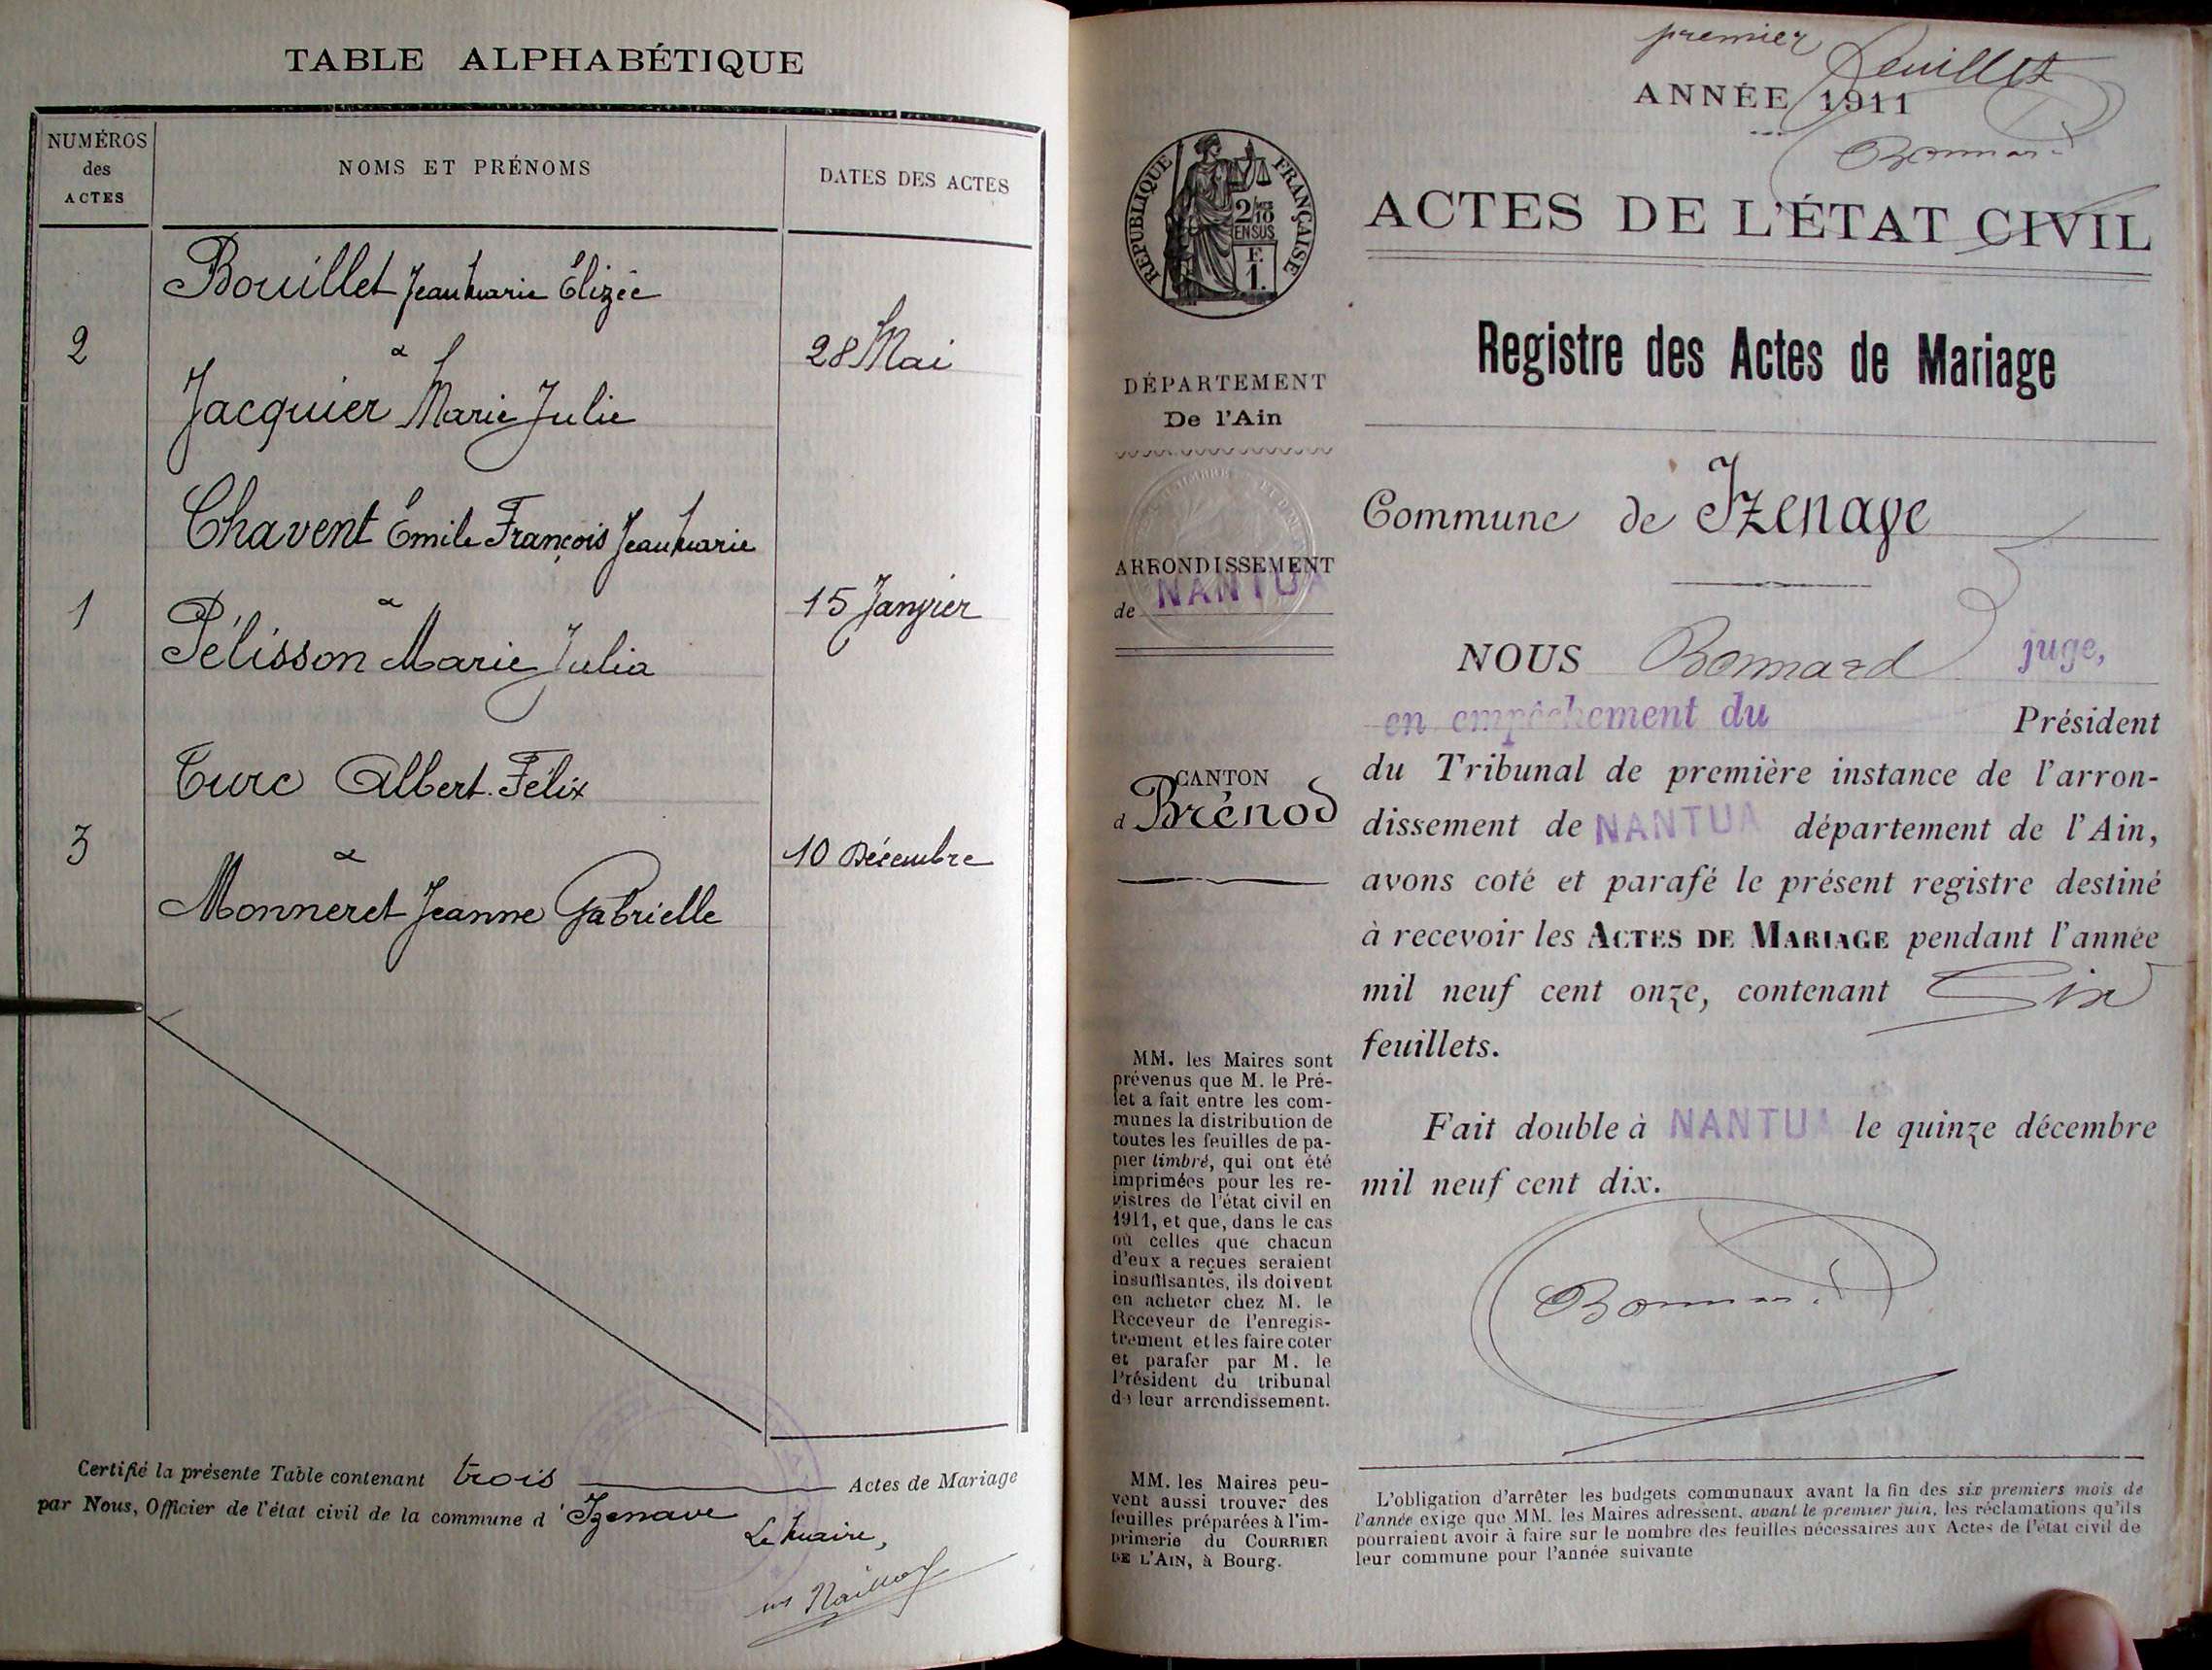 TABLE ALPHABÉTIQUE
NUMÉROS
des
ACTES
NOMS ET PRÉNOMS
DATES DES ACTES
Bouillet Jean marie Élizée
2
&
28 Mai
Jacquier Marie Julie
Chavent Émile François Jean marie
1
&
15 Janvier
Pélisson Marie Julia
Turc Albert Félix
3
&
10 Décembre
Monneret Jeanne Gabrielle
Certifié la présente Table contenant trois Actes de Mariage
par Nous, Officier de l'état civil de la commune d'Izenave
Le maire,
premier feuillet
ANNÉE 1911
Bonnard
RÉPUBLIQUE FRANÇAISE
2/10
EN SUS
F.
1.
ACTES DE L'ÉTAT CIVIL
Registre des Actes de Mariage
DÉPARTEMENT
De l'Ain
Commune de Izenave
ARRONDISSEMENT
de NANTUA
CANTON
d Brénod
NOUS Bonnard juge,
en empêchement du Président
du Tribunal de première instance de l'arron-
dissement de NANTUA département de l'Ain,
avons coté et parafé le présent registre destiné
à recevoir les ACTES DE MARIAGE pendant l'année
mil neuf cent onze, contenant Six
feuillets.
Fait double à NANTUA le quinze décembre
mil neuf cent dix.
Bonnard
MM. les Maires sont
prévenus que M. le Pré-
fet a fait entre les com-
munes la distribution de
toutes les feuilles de pa-
pier timbré, qui ont été
imprimées pour les re-
gistres de l'état civil en
1911, et que, dans le cas
où celles que chacun
d'eux a reçues seraient
insuffisantes, ils doivent
en acheter chez M. le
Receveur de l'enregis-
trement et les faire coter
et parafer par M. le
Président du tribunal
de leur arrondissement.
MM. les Maires peu-
vent aussi trouver des
feuilles préparées à l'im-
primerie du COURRIER
DE L'AIN, à Bourg.
L'obligation d'arrêter les budgets communaux avant la fin des six premiers mois de
l'année exige que MM. les Maires adressent, avant le premier juin, les réclamations qu'ils
pourraient avoir à faire sur le nombre des feuilles nécessaires aux Actes de l'état civil de
leur commune pour l'année suivante